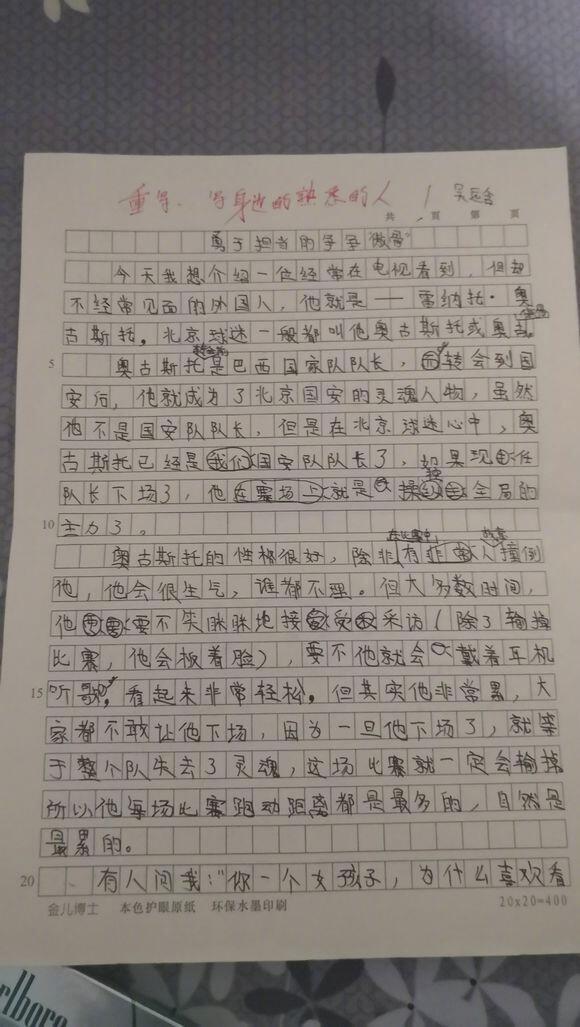 重写. 写身边的熟悉的人
共 页 第 页
勇于担当的
今天我想介绍一位经常在电视看到，但却
不经常见面的外国人，他就是——雷纳托·奥
古斯托。北京球迷一般都叫他奥古斯托或奥古。
5 奥古斯托是巴西国家队队长，转会到国
安后，他就成为了北京国安的灵魂人物，虽然
他不是国安队队长，但是在北京球迷心中，奥
古斯托已经是我们国安队队长了，如果现任
队长下场了，他在赛场上就是操全局的
10 主力了。
奥古斯托的性格很好，除非有人撞倒
他，他会很生气，谁都不理。但大多数时间，
他要不笑眯眯地接受采访（除了输掉
比赛，他会板着脸），要不他就会戴着耳机
15 听歌，看起来非常轻松。但其实他非常累，大
家都不敢让他下场，因为一旦他下场了，就等
于整个队失去了灵魂，这场比赛就一定会输掉
所以他每场比赛跑动距离都是最多的，自然是
最累的。
20 有人问我：“你一个女孩子，为什么喜欢看
金儿博士 本色护眼原纸 环保水墨印刷 20x20=400
rlboro